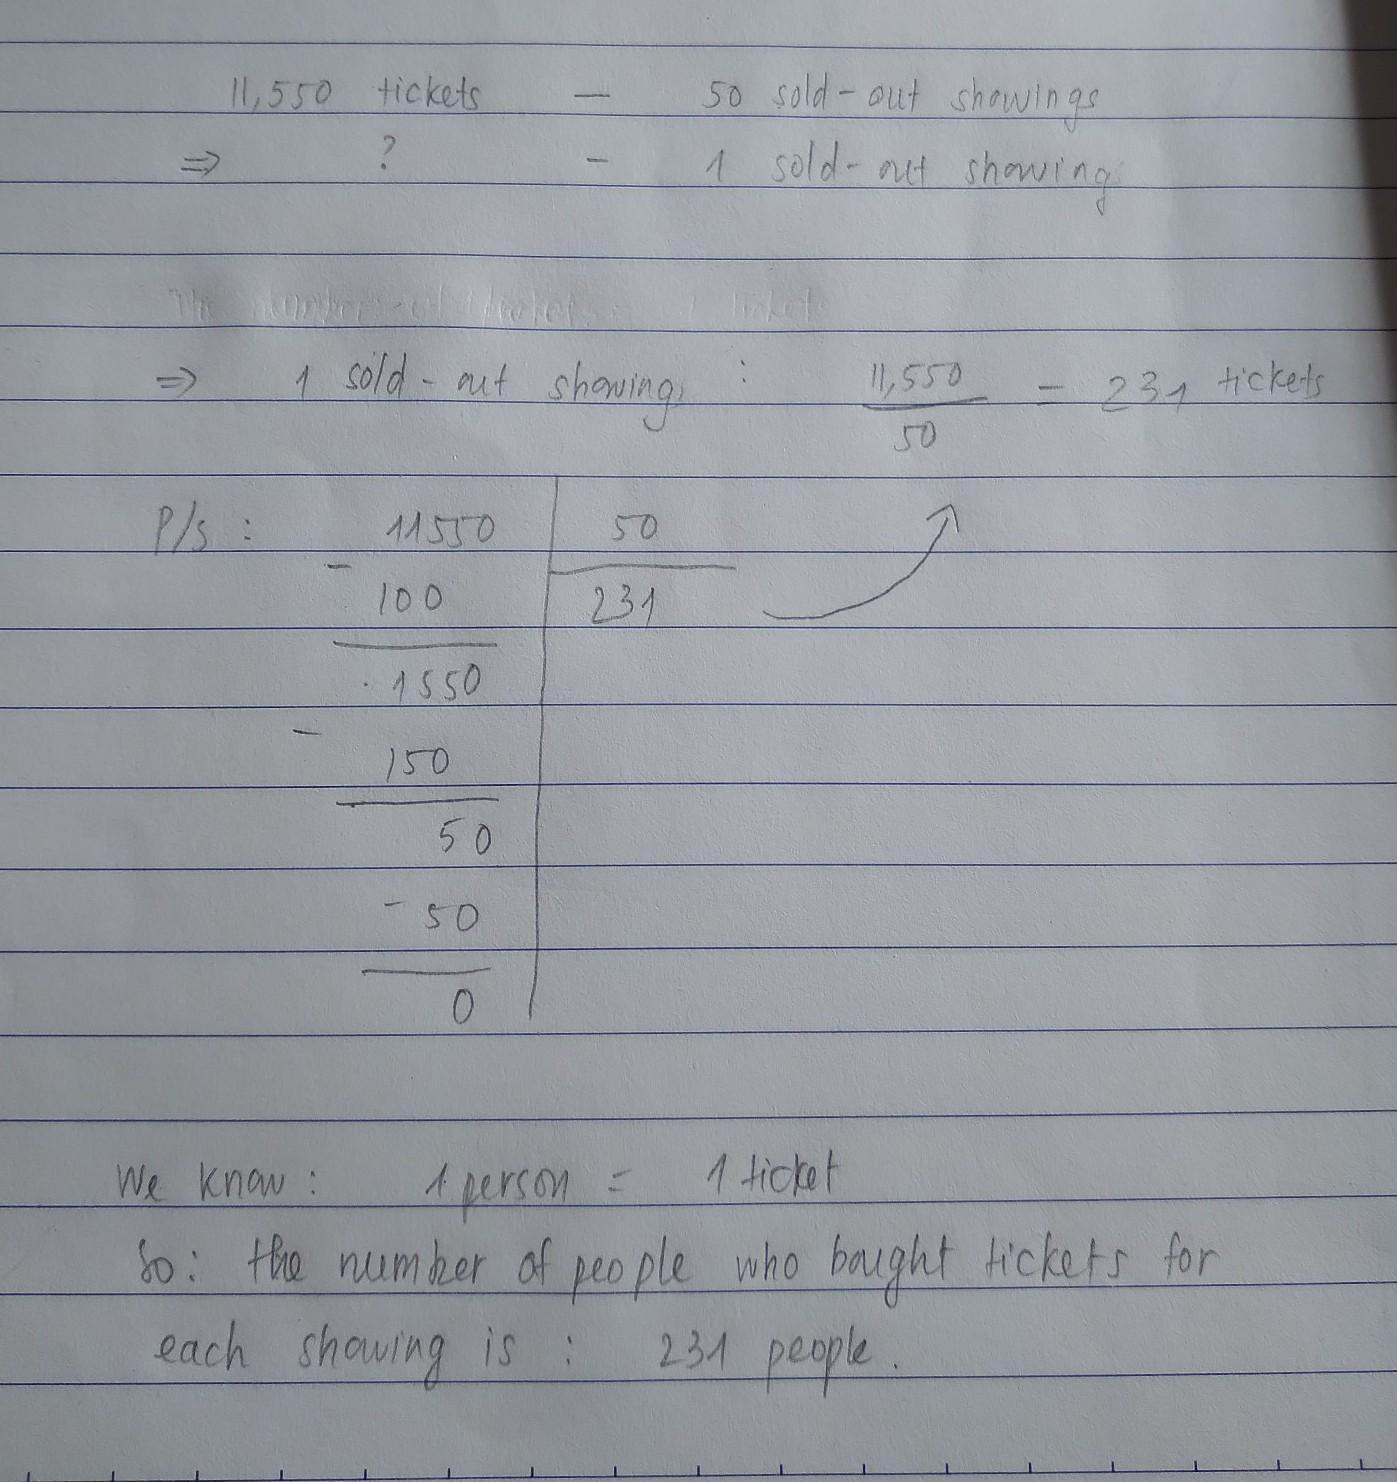 11,550 tickets — 50 sold-out showings
⇒ ? - 1 sold-out showing
⇒ 1 sold-out showing : 11,550 / 50 = 231 tickets
P/s : 11550 | 50
- 100 | 231
1550
- 150
50
- 50
0
We know : 1 person = 1 ticket
So : the number of people who bought tickets for
each showing is : 231 people.